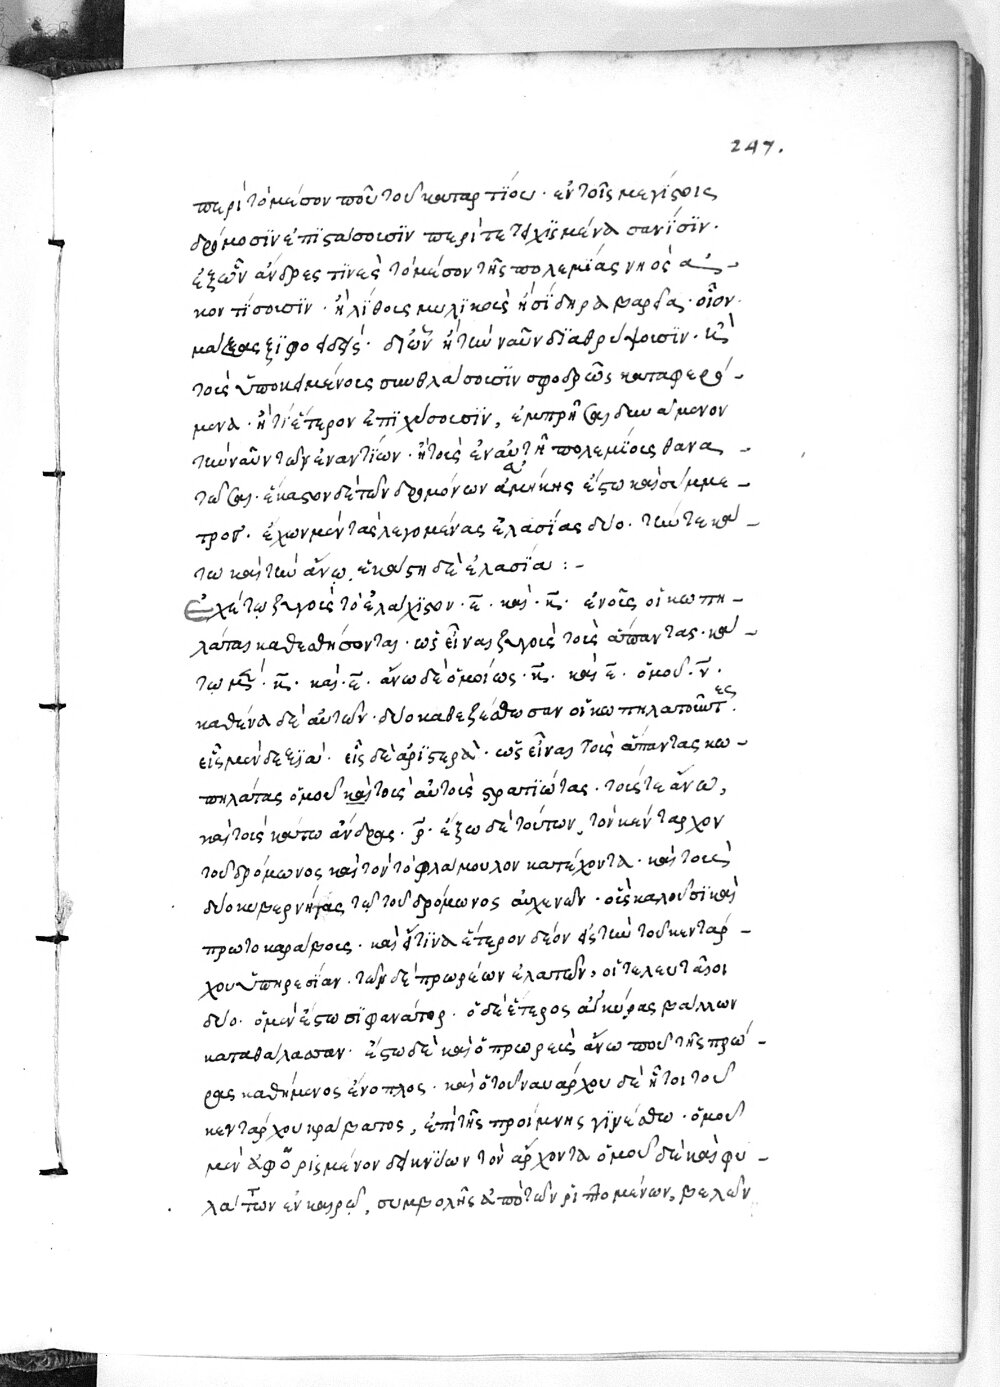 247.
περὶ τὸ μέσον που τοῦ καταρτίου· ἐν τοῖς μεγίστοις
δρόμοσιν ἐπιστάσουσιν περιτετειχισμένα σανίσιν·
ἐξ ὧν ἄνδρες τινὲς τὸ μέσον τῆς πολεμίας νηὸς ἀ-
κοντίσουσιν· ἢ λίθοις μυλικοὺς ἢ σίδηρα βαρέα· οἷον
μάζας ξιφοειδεῖς· δι' ὧν ἢ τὴν ναῦν διαθρύψουσιν· καὶ
τοὺς ὑποκειμένους συνθλάσουσιν σφοδρῶς καταφερό-
μενα· ἤ τι ἕτερον ἐπιχύσουσιν, ἐμπρῆσαι δυνάμενον
τὴν ναῦν τῶν ἐναντίων· ἢ τοὺς ἐν αὐτῇ πολεμίους θανα-
τῶσαι· ἕκαστον δὲ τῶν δρομόνων εὐμήκης ἔστω καὶ σύμμε-
τρος· ἔχων μὲν τὰς λεγομένας ἐλασίας δύο· τήν τε κά-
τω καὶ τὴν ἄνω, ἑκάστη δὲ ἐλασία :-
Ἐχέτω ζυγοὺς τὸ ἐλάχιστον· ε· καὶ· κ· ἐν οἷς οἱ κωπη-
λάται καθεσθήσονται· ὡς εἶναι ζυγοὺς τοὺς ἅπαντας· κά-
τω μὲν· κ· καὶ· ε· ἄνω δὲ ὁμοίως· κ· καὶ ε· ὁμοῦ· ν·
καθένα δὲ αὐτῶν· δύο καθεζέσθωσαν οἱ κωπηλατοῦντες·
εἷς μὲν δεξιά· εἷς δὲ ἀριστερά· ὡς εἶναι τοὺς ἅπαντας κω-
πηλάτας ὁμοῦ καὶ τοὺς αὐτοὺς στρατιώτας· τούς τε ἄνω,
καὶ τοὺς κάτω ἄνδρας· ρ· ἔξω δὲ τούτων, τὸν κένταρχον
τοῦ δρόμωνος καὶ τὸν τὸ φλάμουλον κατέχοντα· καὶ τοὺς
δύο κυβερνήτας τῶν τοῦ δρόμωνος αὐχένων· οὓς καλοῦσι καὶ
πρωτοκαράβους· καὶ εἴ τινα ἕτερον δέον εἰς τὴν τοῦ κεντάρ-
χου ὑπηρεσίαν· τῶν δὲ πρωρέων ἐλατῶν, οἱ τελευταῖοι
δύο· ὁ μὲν ἔστω σιφωνάτορ· ὁ δὲ ἕτερος ἀγκύρας βάλλων
κατὰ θάλασσαν· ἔστω δὲ καὶ ὁ πρωρεὺς ἄνω που τῆς πρώ-
ρας καθήμενος ἔνοπλος· καὶ ὁ τοῦ ναυάρχου δὲ ἤτοι τοῦ
κεντάρχου κράβατος, ἐπὶ τῆς πρύμνης γινέσθω· ὁμοῦ
μὲν ἀφορισμένον δεικνύων τὸν ἄρχοντα ὁμοῦ δὲ καὶ φυ-
λάττων ἐν καιρῷ, συμβολῆς ἀπὸ τῶν ῥιπτομένων, βελῶν